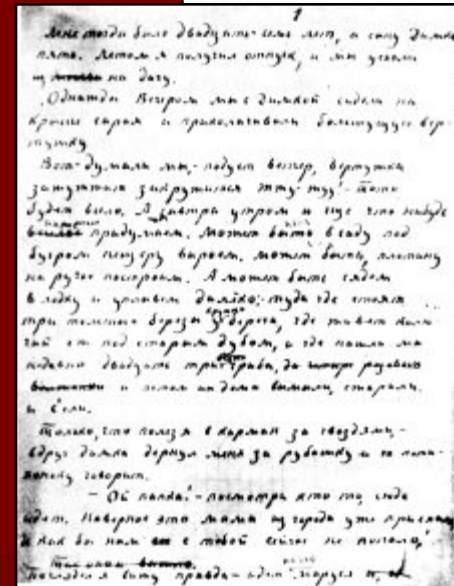 1
Мне тогда было двадцать семь лет, а сыну Димке
пять. Летом я получил отпуск, и мы уехали
на дачу.
Однажды Вечером мы с Димкой сидели на
крыше сарая и приколачивали болтушую вер-
тушку
Вот - думали мы, - подует ветер, вертушка
зажужжит закружится жжу-жжу! - Тото
будет весело. А завтра утром и еще что нибудь
придумаем. Может быть в саду под
бугром пещеру выроем, может быть, плотину
на ручье построим. А может быть сядем
в лодку и уплывем далеко; туда где стоят
три березы у берега, где живет
под старым дубом, и где нашли мы
недавно двадцать три гриба, да
и потом их дома
и ели.
Только, что полез я в карман за гвоздями, -
вдруг димка дернул меня за рубашку и
говорит.
- Ой папка! - посмотри кто то, сюда
идет. Наверное это мама из города уже приехала
и как бы нам с тобой сейчас не попало!
Поглядел я вижу правда - идет маруся